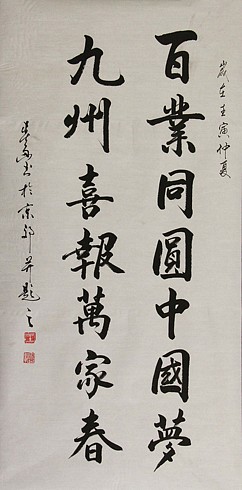 歲在壬寅仲夏
百業同圓中國夢
九州喜報萬家春
書於京郊并題之